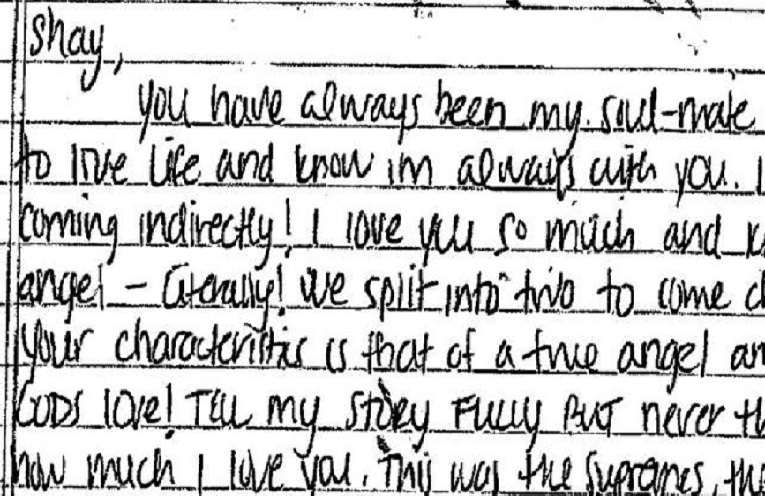 Shay,
you have always been my soul-mate
to live life and know im always with you. I
coming indirectly! I love you so much and k
angel - literally! We split into two to come d
your characteristics is that of a true angel an
GODS love! TELL my STORY FULLY BUT never th
how much I love you. This was the supremes, the